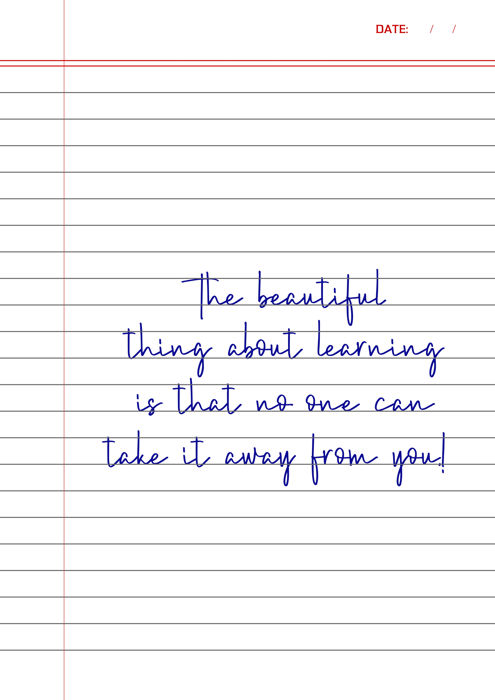 DATE: / /
The beautiful
thing about learning
is that no one can
take it away from you!